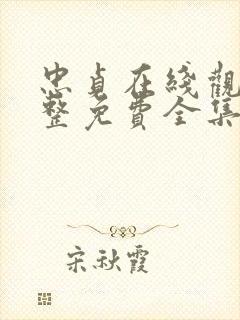 忠貞在綫觀
整免費全集
宋秋霞